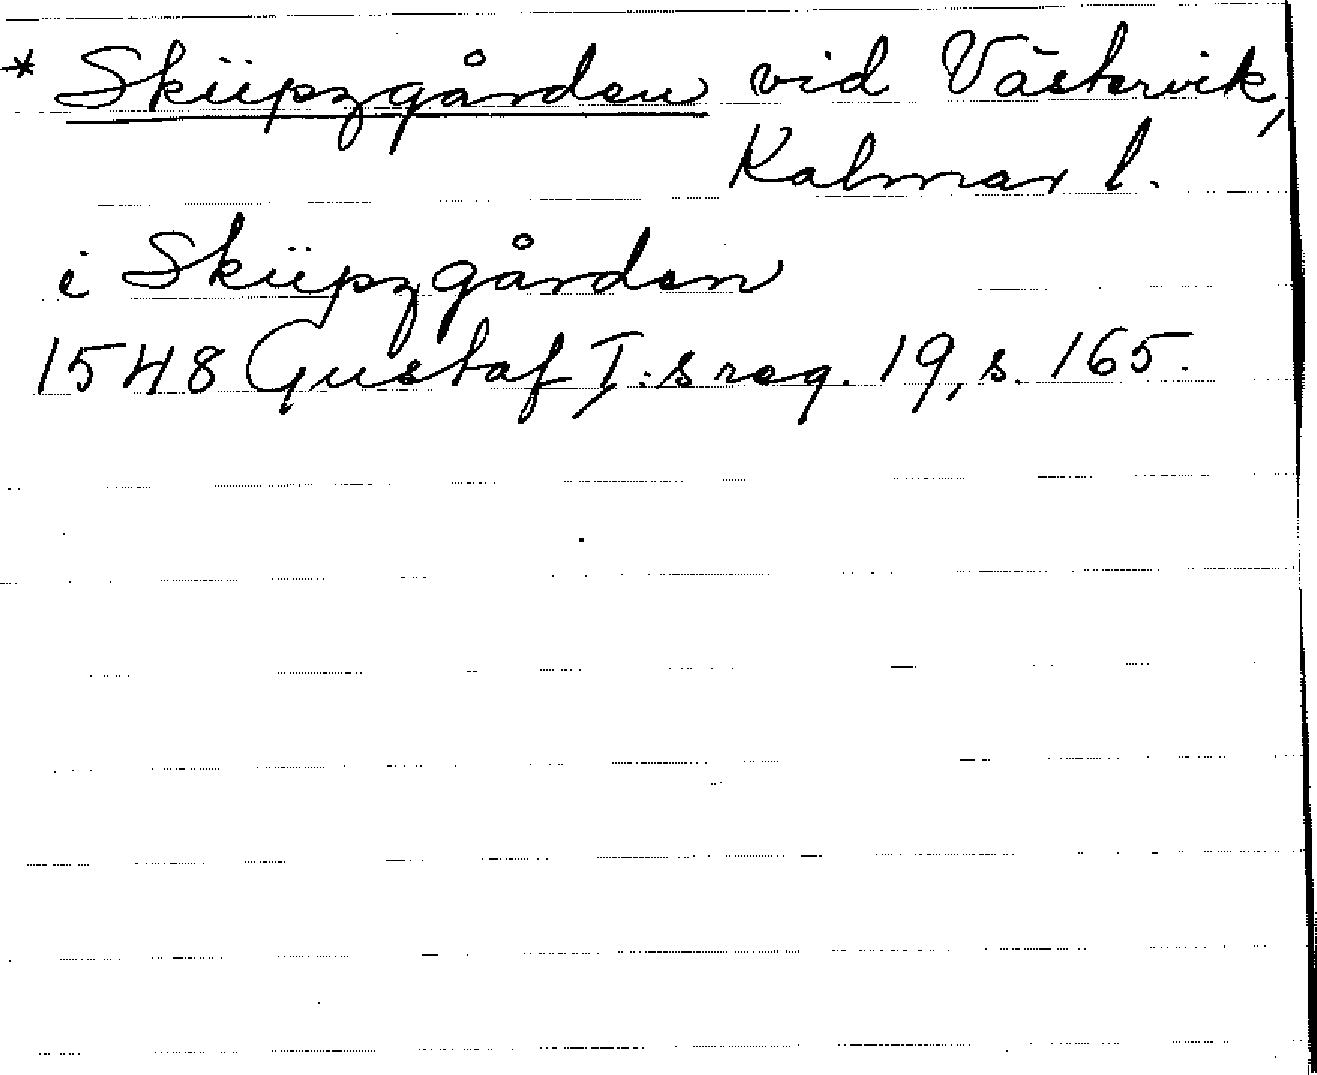 * Sküpzgården vid Västervik,
Kalmar l.
i Sküpzgården
1548 Gustaf I:s reg. 19, s. 165.